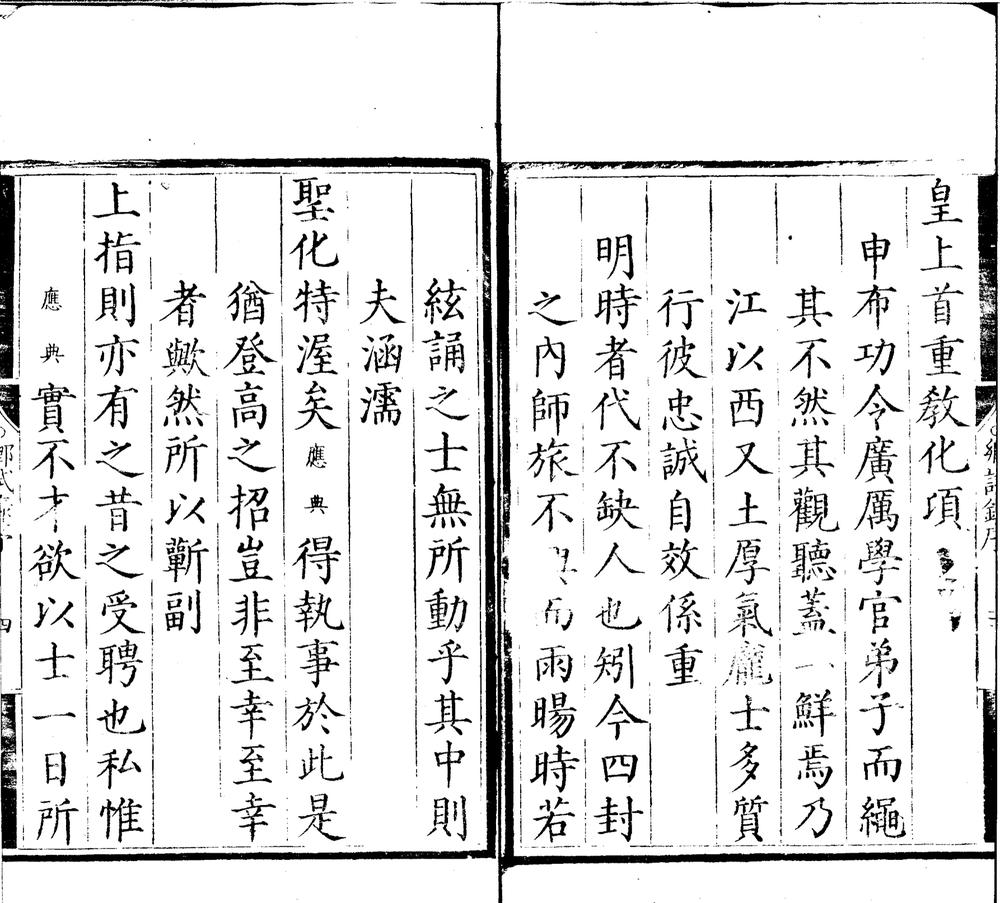 皇上首重敎化項
申布功令廣厲學官弟子而繩
其不然其觀聽蓋一鮮焉乃
江以西又土厚氣龐士多質
行彼忠誠自效係重
明時者代不缺人也矧今四封
之內師旅不而雨暘時若
絃誦之士無所動乎其中則
夫涵濡
聖化特渥矣應典得執事於此是
猶登高之招豈非至幸至幸
者歟然所以蘄副
上指則亦有之昔之受聘也私惟
應典實不才欲以士一日所